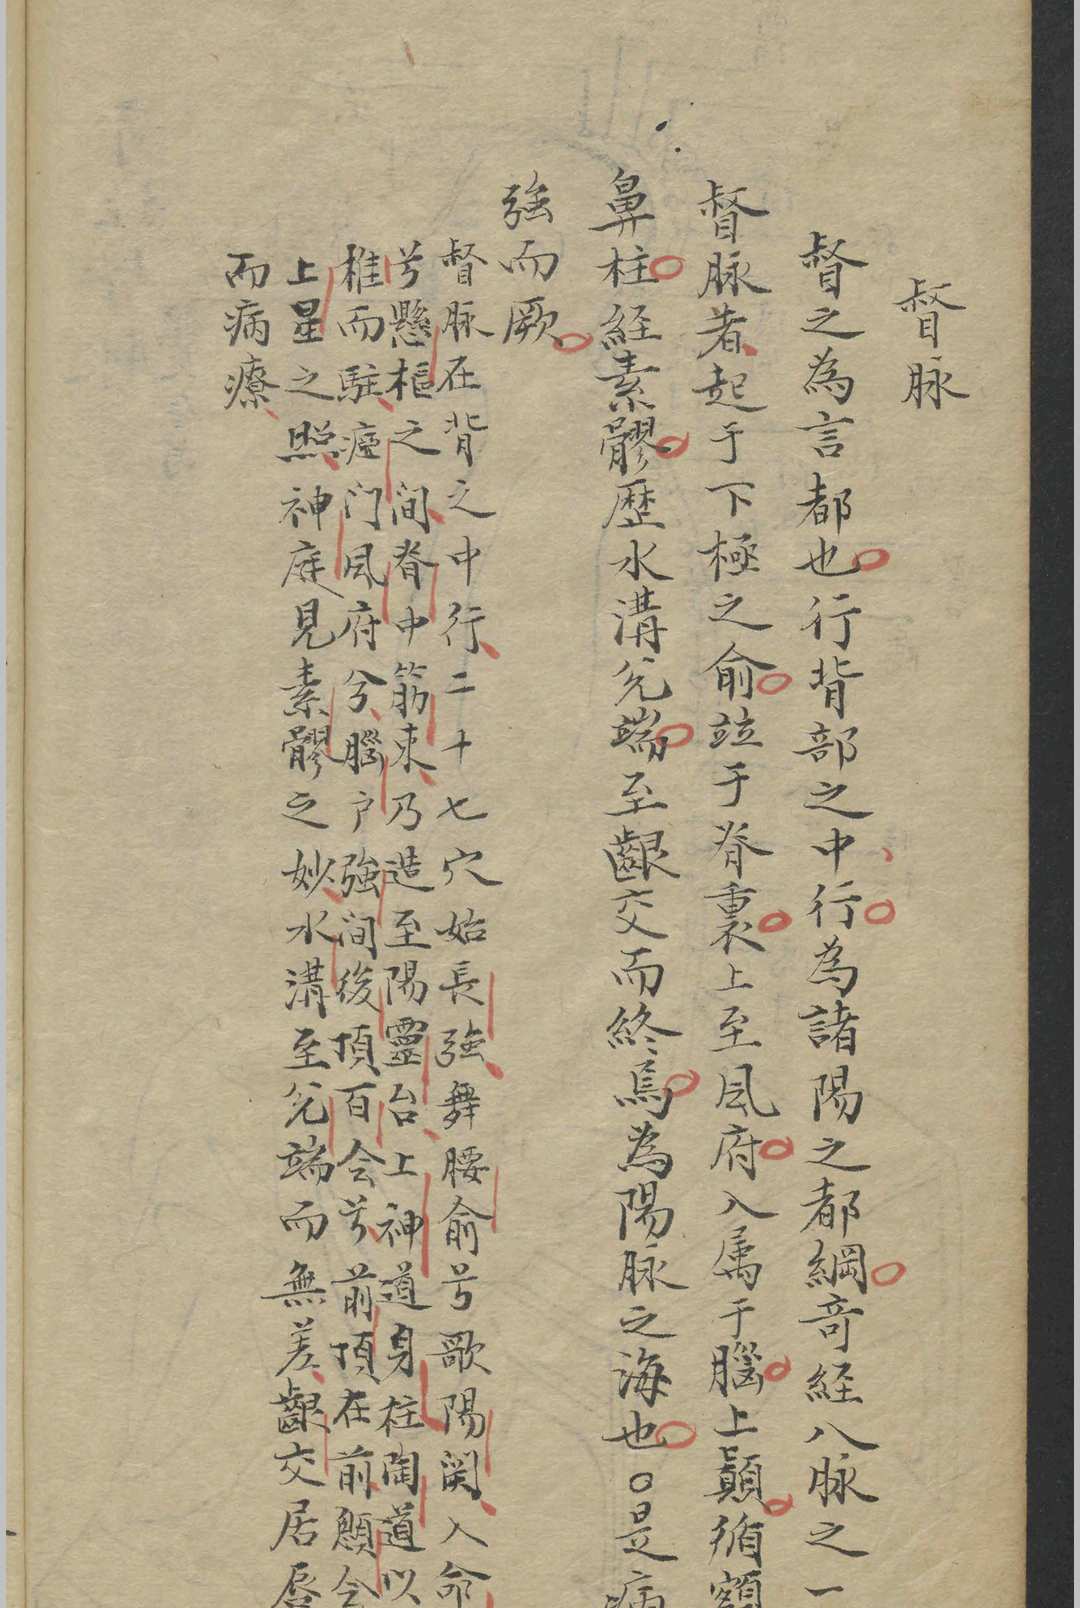 督脉
督之為言都也行背部之中行為諸陽之都綱奇経八脉之一
督脉者起于下極之俞竝于脊裏上至風府入属于腦上顛循額
鼻柱経素髎歴水溝兊端至齦交而終焉為陽脉之海也○是病
強而厥
督脉在背之中行二十七穴始長強舞腰俞兮歌陽関入命
兮懸樞之间脊中筋束乃造至陽靈台上神道身柱陶道以
椎而駐瘂门風府兮腦户強间後頂百会兮前頂在前顖会
上星之照神庭見素髎之妙水溝至兊端而無差齦交居唇
而病療